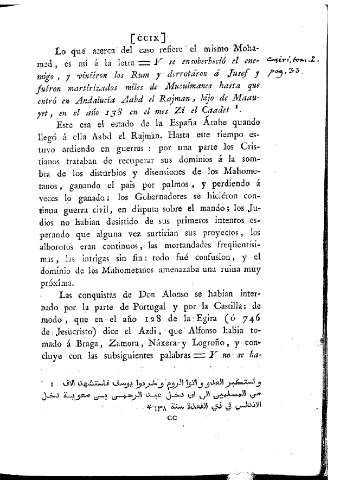 [CCIX]
Lo que acerca del caso refiere el mismo Moha-
med, es así á la letra = Y se ensoberbeció el ene-
migo, y viniéron los Rum y derrotáron á Jusef y
fuéron martirizados miles de Musulmanes hasta que
entró en Andalucía Aabd el Rajman, hijo de Maau-
yet, en el año 138 en el mes Zi el Caadet ¹.
Casiri, tom. 2.
pag. 33.
Este era el estado de la España Árabe quando
llegó á ella Aabd el Rajman. Hasta este tiempo es-
tuvo ardiendo en guerras: por una parte los Cris-
tianos trataban de recuperar sus dominios á la som-
bra de los disturbios y disensiones de los Mahome-
tanos, ganando el pais por palmos, y perdiendo á
veces lo ganado: los Gobernadores se hiciéron con-
tinua guerra civil, en disputa sobre el mando; los Ju-
dios no habian desistido de sus primeros intentos es-
perando que alguna vez surtirian sus proyectos, los
alborotos eran continuos, las mortandades freqüentísi-
mas, las intrigas sin fin: todo fué confusion, y el
dominio de los Mahometanos amenazaba una ruina muy
próxima.
Las conquistas de Don Alonso se habian inter-
nado por la parte de Portugal y por la Castilla: de
modo, que en el año 128 de la Egira (ó 746
de Jesucristo) dice el Azdi, que Alfonso habia to-
mado á Braga, Zamora, Náxera y Logroño, y con-
cluye con las subsiguientes palabras = Y no se ha-
واستكبر العدو واتوا الروم وخردوا يوسف فاستشهد الاف
من المسلمين الى ان دخل عبد الرحمن بن معوية دخل
الاندلس في ذي القعدة سنة ١٣٨
CC